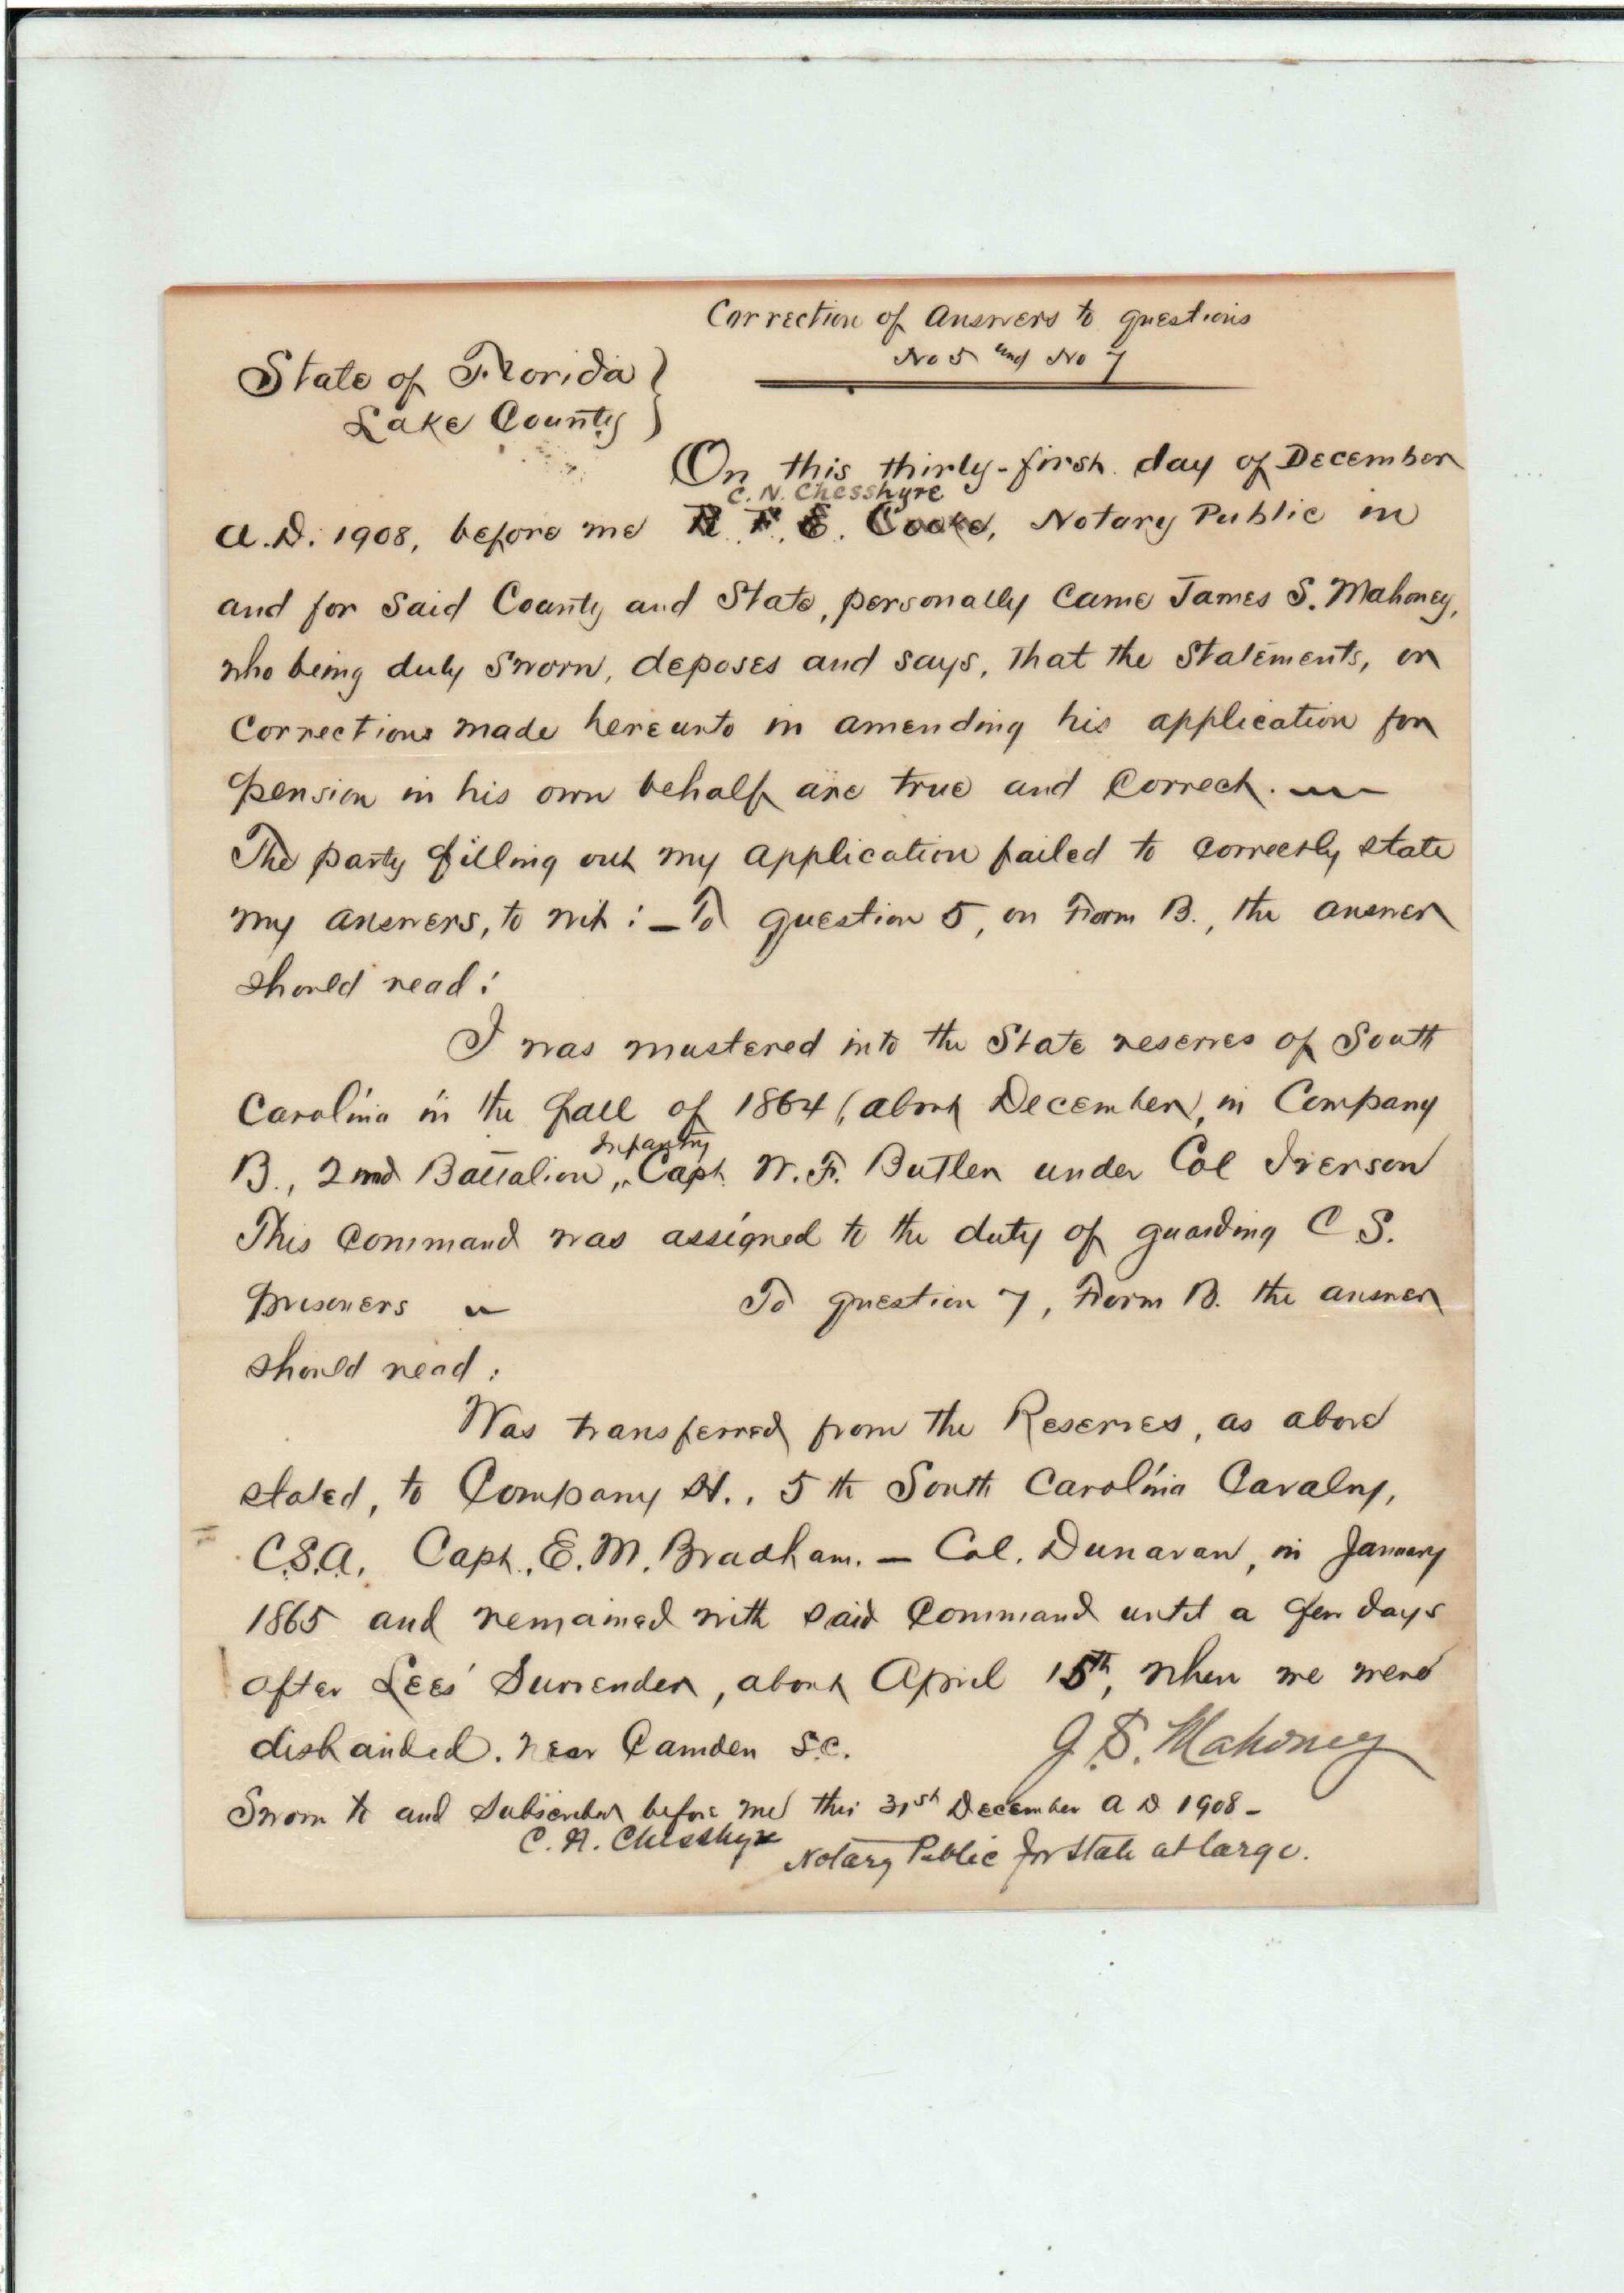 Correction of Answers to questions
No 5 and No 7
State of Florida }
Lake County }
On this thirty-first day of December
C. N. Chesshyre
A.D. 1908, before me R. F. E. Cooke, Notary Public in
and for said County and State, personally came James S. Mahoney,
who being duly sworn, deposes and says, that the statements, or
corrections made hereunto in amending his application for
pension in his own behalf are true and correct. —
The party filling out my application failed to correctly state
my answers, to wit: — To question 5, on Form B., the answer
should read:
I was mustered into the State reserves of South
Carolina in the fall of 1864 (about December), in Company
Infantry
B., 2nd Battalion, Capt. W. F. Butler under Col Iverson
This command was assigned to the duty of guarding C. S.
prisoners — To question 7, Form B. the answer
should read:
Was transferred from the Reserves, as above
stated, to Company H., 5th South Carolina Cavalry,
C.S.A. Capt. E. M. Bradham. — Col. Dunavan, in January
1865 and remained with said command until a few days
after Lees' Surrender, about April 15th, when we were
disbanded. near Camden S.C. J. S. Mahoney
Sworn to and Subscribed before me this 31st December A D 1908 -
C. N. Chesshyre Notary Public for State at large.